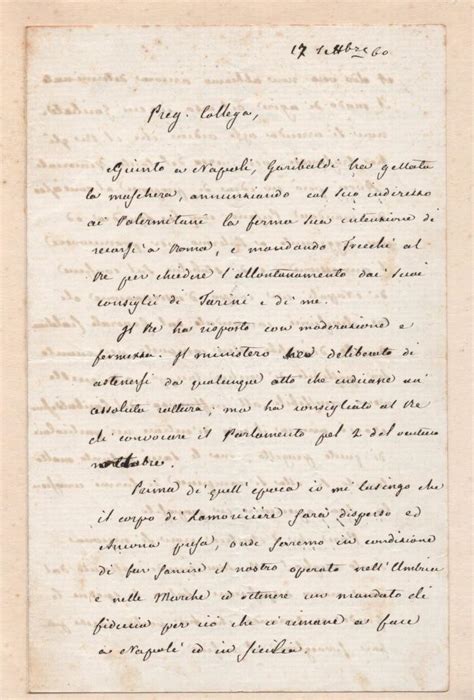 17 settbre 60
Preg. Collega,
Giunto a Napoli, Garibaldi ha gettata
la maschera, annunziando col suo indirizzo
ai Palermitani la ferma sua intenzione di
recarsi a Roma, e mandando Trecchi al
Re per chiedere l'allontanamento dai suoi
consigli di Farini e di me.
Il Re ha risposto con moderazione e
fermezza. Il ministero ha deliberato di
astenersi da qualunque atto che indicane un'
assoluta rottura; ma ha consigliato al Re
di convocare il Parlamento pel 2 del venturo
Prima di quell'epoca io mi lusingo che
il corpo di Lamoricière sarà disperso ed
Ancona presa, onde saremo in condizione
di far sancire il nostro operato nell'Umbria
e nelle Marche ed ottenere un mandato di
fiducia per ciò che ci rimane a fare
a Napoli ed in Sicilia.